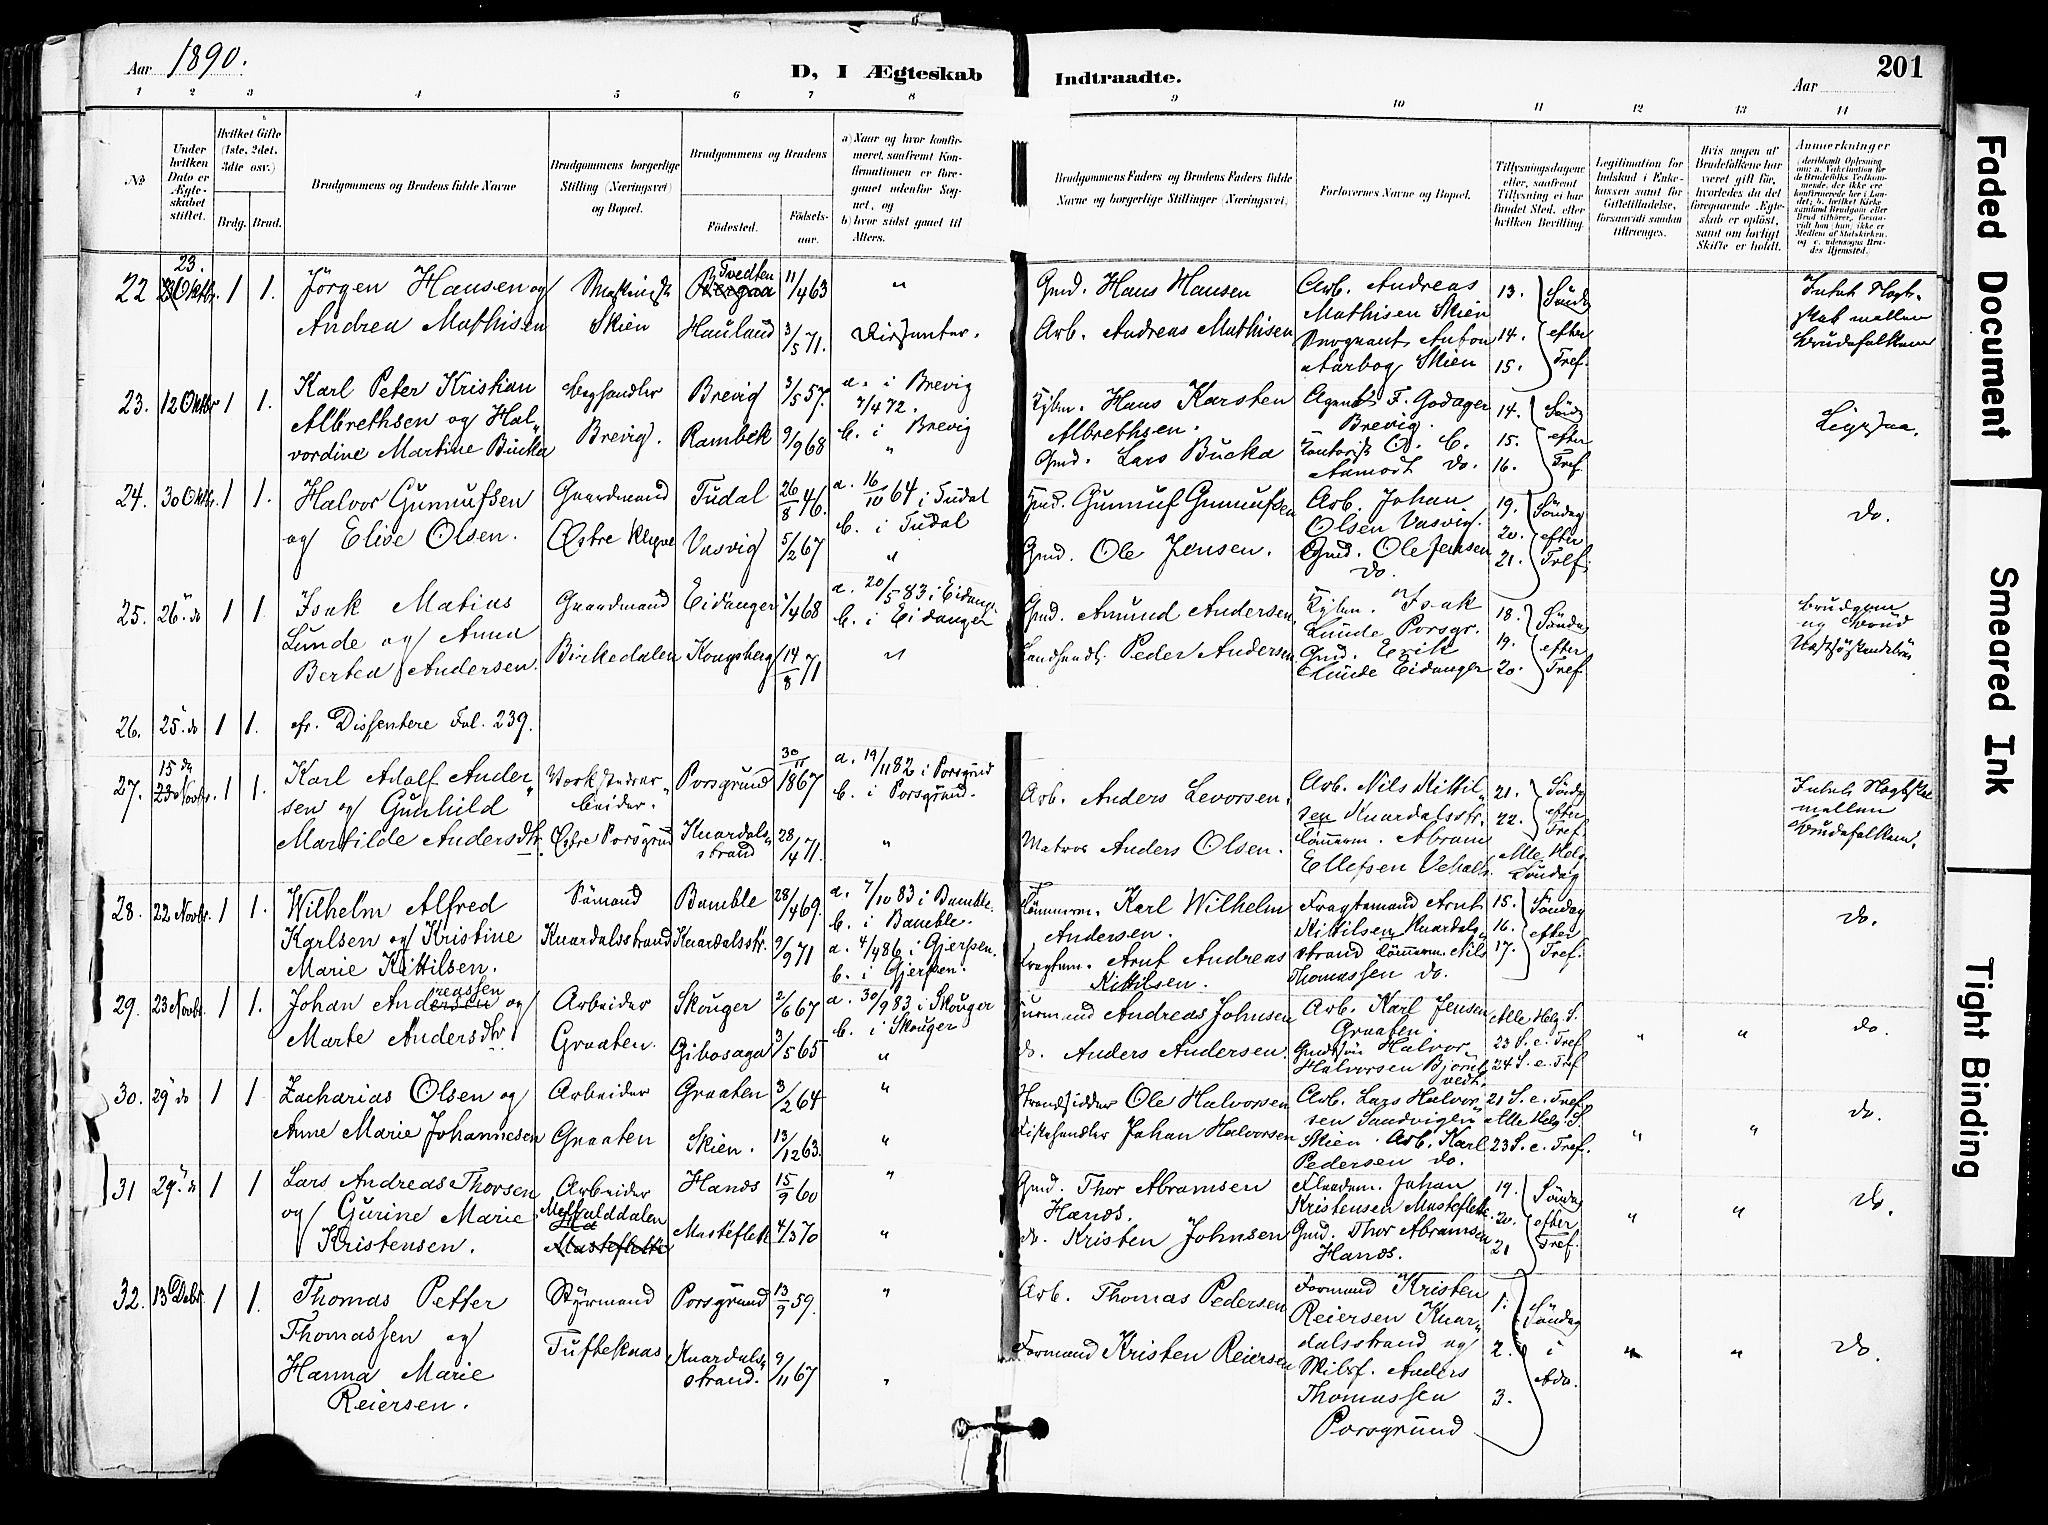 Aar 1890.
D, I Ægteskab Indtraadte.
Aar
201
1 2 3 4 5 6 7 8 9 10 11 12 13 14
No.
Under hvilken Dato er Ægteskabet stiftet.
Hvilket Gifte (1ste, 2det, 3die osv.)
Brdg. Brud.
Brudgommens og Brudens fulde Navne
Brudgommens borgerlige Stilling (Næringsvei) og Bopæl.
Brudgommens og Brudens
Fødested.
Fødselsaar.
a) Naar og hvor konfirmeret, saafremt Konfirmationen er foregaaet udenfor Sognet, og
b) hvor sidst gaaet til Alters.
Brudgommens Faders og Brudens Faders fulde Navne og borgerlige Stillinger (Næringsvei).
Forlovernes Navne og Bopæl.
Tillysningsdagene eller, saafremt Tillysning ei har fundet Sted, efter hvilken Bevilling.
Legitimation for Indskud i Enkekassen samt for Giftetilladelse, forsaavidt saadan tiltrænges.
Hvis nogen af Brudefolkene har været gift før, hvorledes da det foregaaende Ægteskab er opløst, samt om lovligt Skifte er holdt.
Anmerkninger
22 23. Oktbr. 1 1. Jörgen Hansen og Andrea Mathisen
Maskinist Skien
Tvedten Hauland
11/4 63 3/5 71.
" Dissenter.
Gmd. Hans Hansen
Arb. Andreas Mathisen
Arb. Andreas Mathisen Skien
Anton Aarbog Skien
13. 14. 15. Söndag efter Tref.
Intet Slegtskab mellem Brudefolkene
23. 12 Oktbr 1 1. Karl Peter Kristian Albrethsen og Halvordine Martine Bucka
Brevig.
Brevig Rambek
3/5 57. 9/9 68
a. i Brevig 7/4 72.
b. i Brevig
"
Hans Karsten Albrethsen.
Gmd. Lars Bucka
Agent F. Godager Brevig.
Kontorist O. C. Aamodt do.
14. 15. 16. Söndag efter Tref.
Ligesaa.
24. 30 Oktbr. 1 1. Halvor Gunnufsen og Elise Olsen.
Gaardmand
Tudal Vasvig
26/8 46. 5/2 67
a. 16/10 64 i Tudal
b. i Tudal
"
Gmd. Gunnuf Gunnufsen
Gmd. Ole Jensen.
Arb. Johan Olsen Vasvig.
Gmd. Ole Jensen do.
19. 20. 21. Söndag efter Tref.
do.
25. 26 do 1 1. Isak Matias Lunde og Anna Bertea Andersen.
Gaardmand Birkedalen
Eidanger Kongsberg
1/4 68 14/8 71
a. 20/5 83 i Eidang.
b. i Eidanger
"
Gmd. Amund Andersen
Landhandl. Peder Andersen
Isak Lunde Porsgr.
Gmd. Erik Lunde Eidanger
18. 19. 20. Söndag efter Tref
Brudgom og Brud
26. 25 do 1 1. cfr. Dissentere Fol. 239.
27. 15 de Novbr. 1 1. Karl Adolf Andersen og Gunhild Martilde Andersdtr.
Østre Porsgrund
Porsgrund Knardalsstrand
30/11 1867 28/4 71.
a. 19/11 82 i Porsgrund
b. i Porsgrund.
"
Arb. Anders Levorsen.
Matros Anders Olsen.
Arb. Nils Kittilsen Knardalsstr.
Tömmerm. Abram Ellefsen
21. 22. Söndag efter Tref.
Alle Helg. Söndag
Intet Slegtskab mellem Brudefolkene.
28. 22 Novbr. 1 1. Wilhelm Alfred Karlsen og Kristine Marie Kittilsen.
Sömand Knardalsstrand
Bamble Knardalsstr.
28/4 69. 9/9 71
a. 7/10 83 i Bamble.
b. i Bamble.
a. 4/4 86 i Gjerpen.
b. i Gjerpen.
Tömmerm. Karl Wilhelm Andersen.
Fragtem. Arnt Andreas Kittilsen.
Fragtemand Arnt Kittilsen Knardalsstrand
Tömmerm. Nils Thomassen do.
15. 16. 17. Söndag efter Tref.
do.
29. 23 Novbr. 1 1. Johan Andreassen og Marte Andersdtr
Arbeider Graaten.
Skouger Gibosaga
2/6 67 3/5 65
a. 30/9 83 i Skouger
b. i Skouger
"
Andreas Johnsen
do. Anders Andersen.
Arb. Karl Jensen Graaten.
Halvor Halvorsen Björntvedt.
Alle Helg. S. 23 S. e. Tref 24 S. e. Tref
" " do.
30. 29 do 1 1 Zacharias Olsen og Anne Marie Johannesen
Arbeider Graaten
Graaten Skien.
3/2 64 13/12 63.
" "
Strandsidder Ole Halvorsen
Fiskehandler Johan Halvorsen
Arb. Lars Halvorsen Sandvigen Skien. Arb. Karl Pedersen do.
21 S. e. Tref. Alle Helg. S. 23 S. e. Tref.
" " do.
31 29 d 1 1 Lars Andreas Thorsen og Gurine Marie Kristensen.
Arbeider Mæhulddalen Musteflette
Hanos Musteflet
15/9 60 4/3 70
" "
Gmd. Thor Abramsen Hanos.
do. Kristen Johnsen
Johan Kristensen Musteflette.
Gmd. Thor Abramsen Hanos.
19. 20. 21 Söndag efter Tref.
" " do.
32. 13 Debr. 1 1. Thomas Petter Thomassen og Hanna Marie Reiersen.
Styrmand Tufteknas
Porsgrund Knardalsstrand.
13/9 59. 9/11 67
" "
Arb. Thomas Pedersen
Formand Kristen Reiersen
Formand Kristen Reiersen Knardalsstrand og Anders Thomassen Porsgrund
1. 2. 3. Söndag i Adv.
" " do.
Faded Document
Smeared Ink
Tight Binding